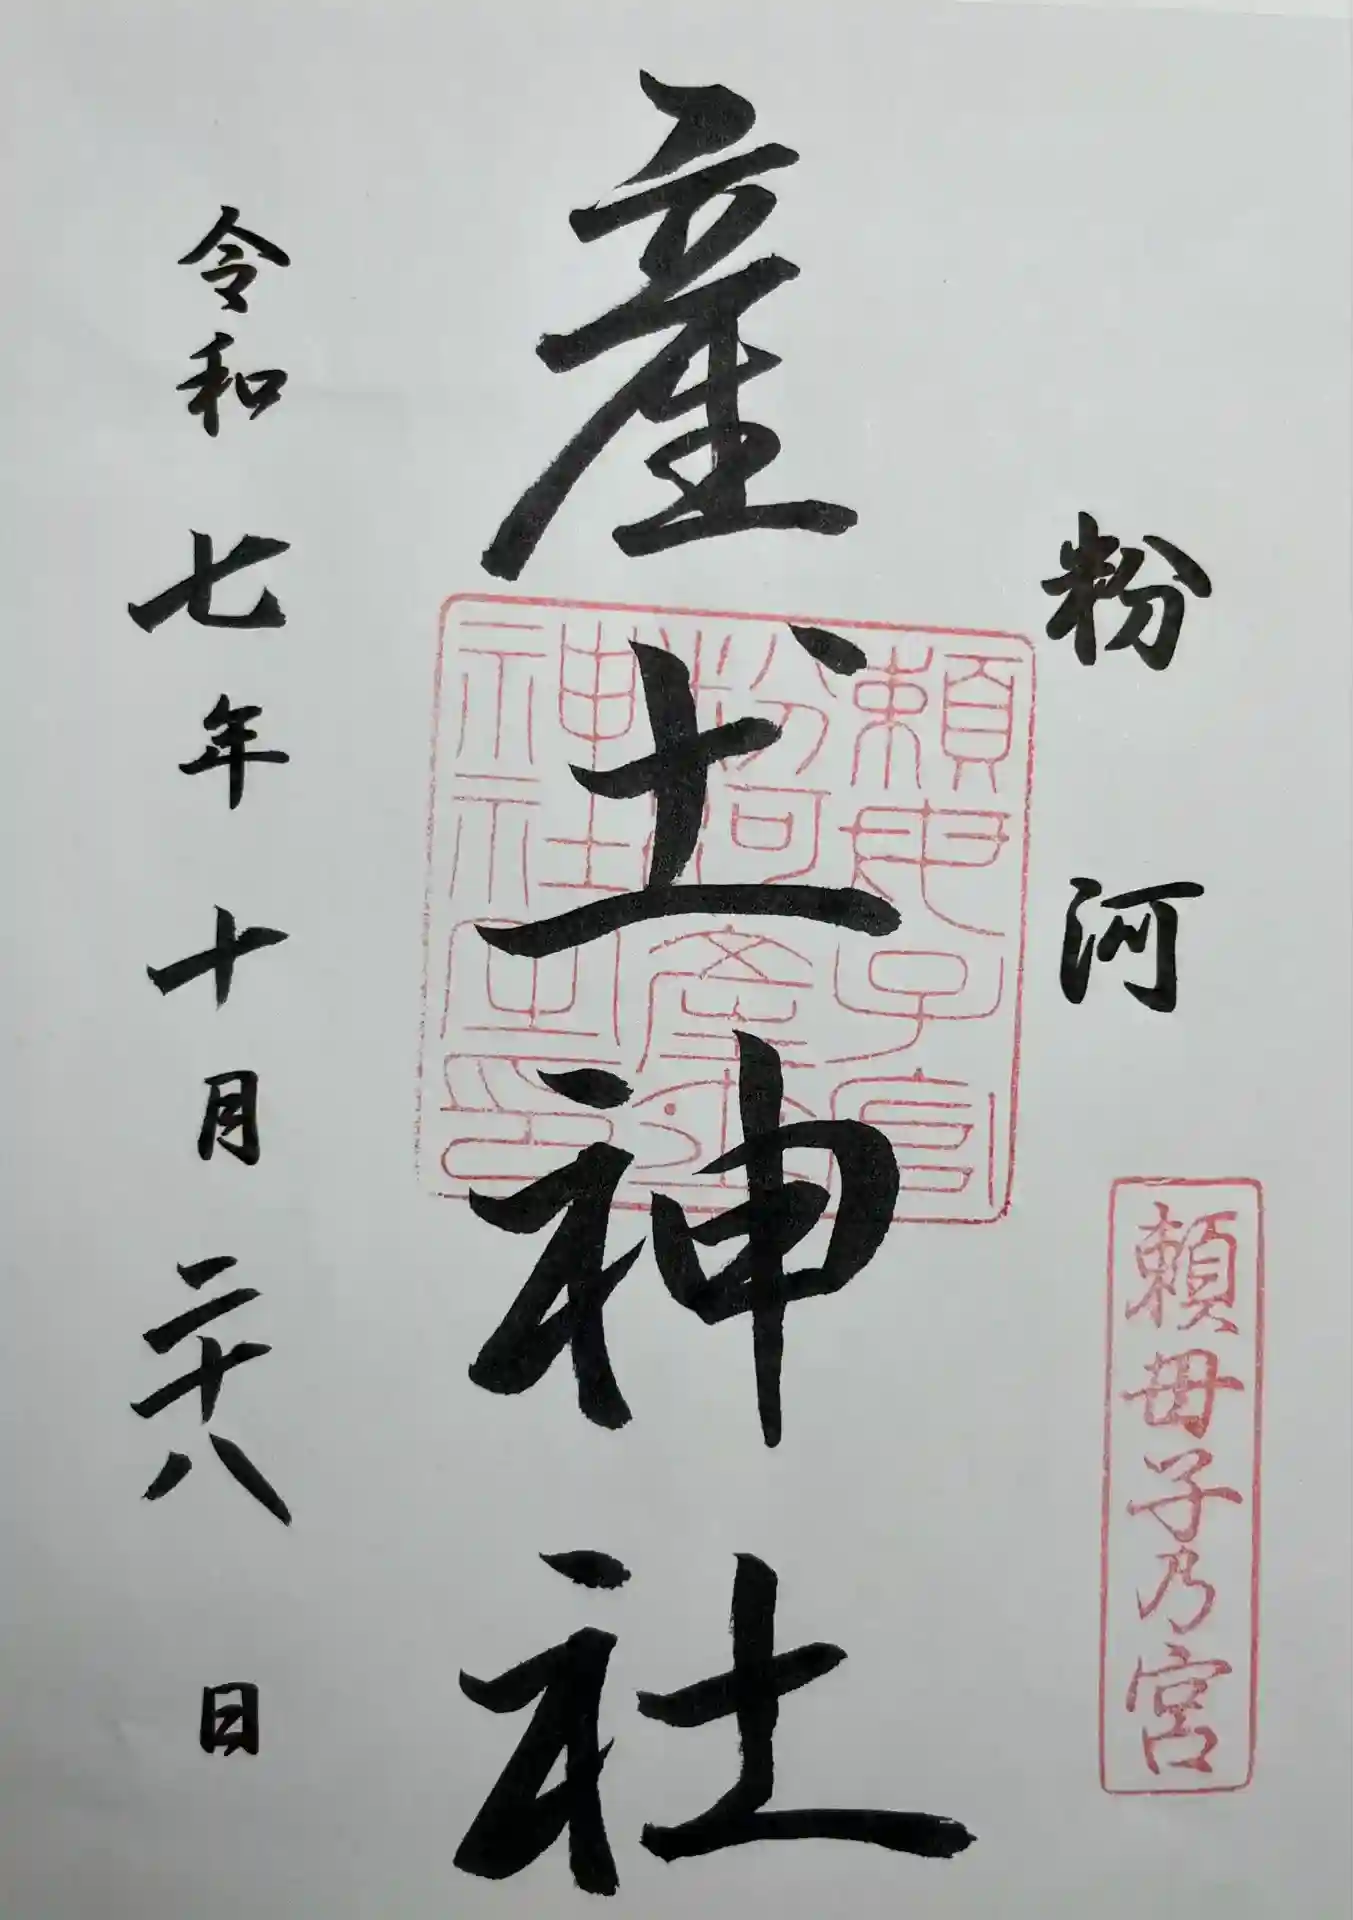 粉河
頼母子乃宮
産土神社
頼母子宮
粉河産土
神社之印
令和七年十月二十八日